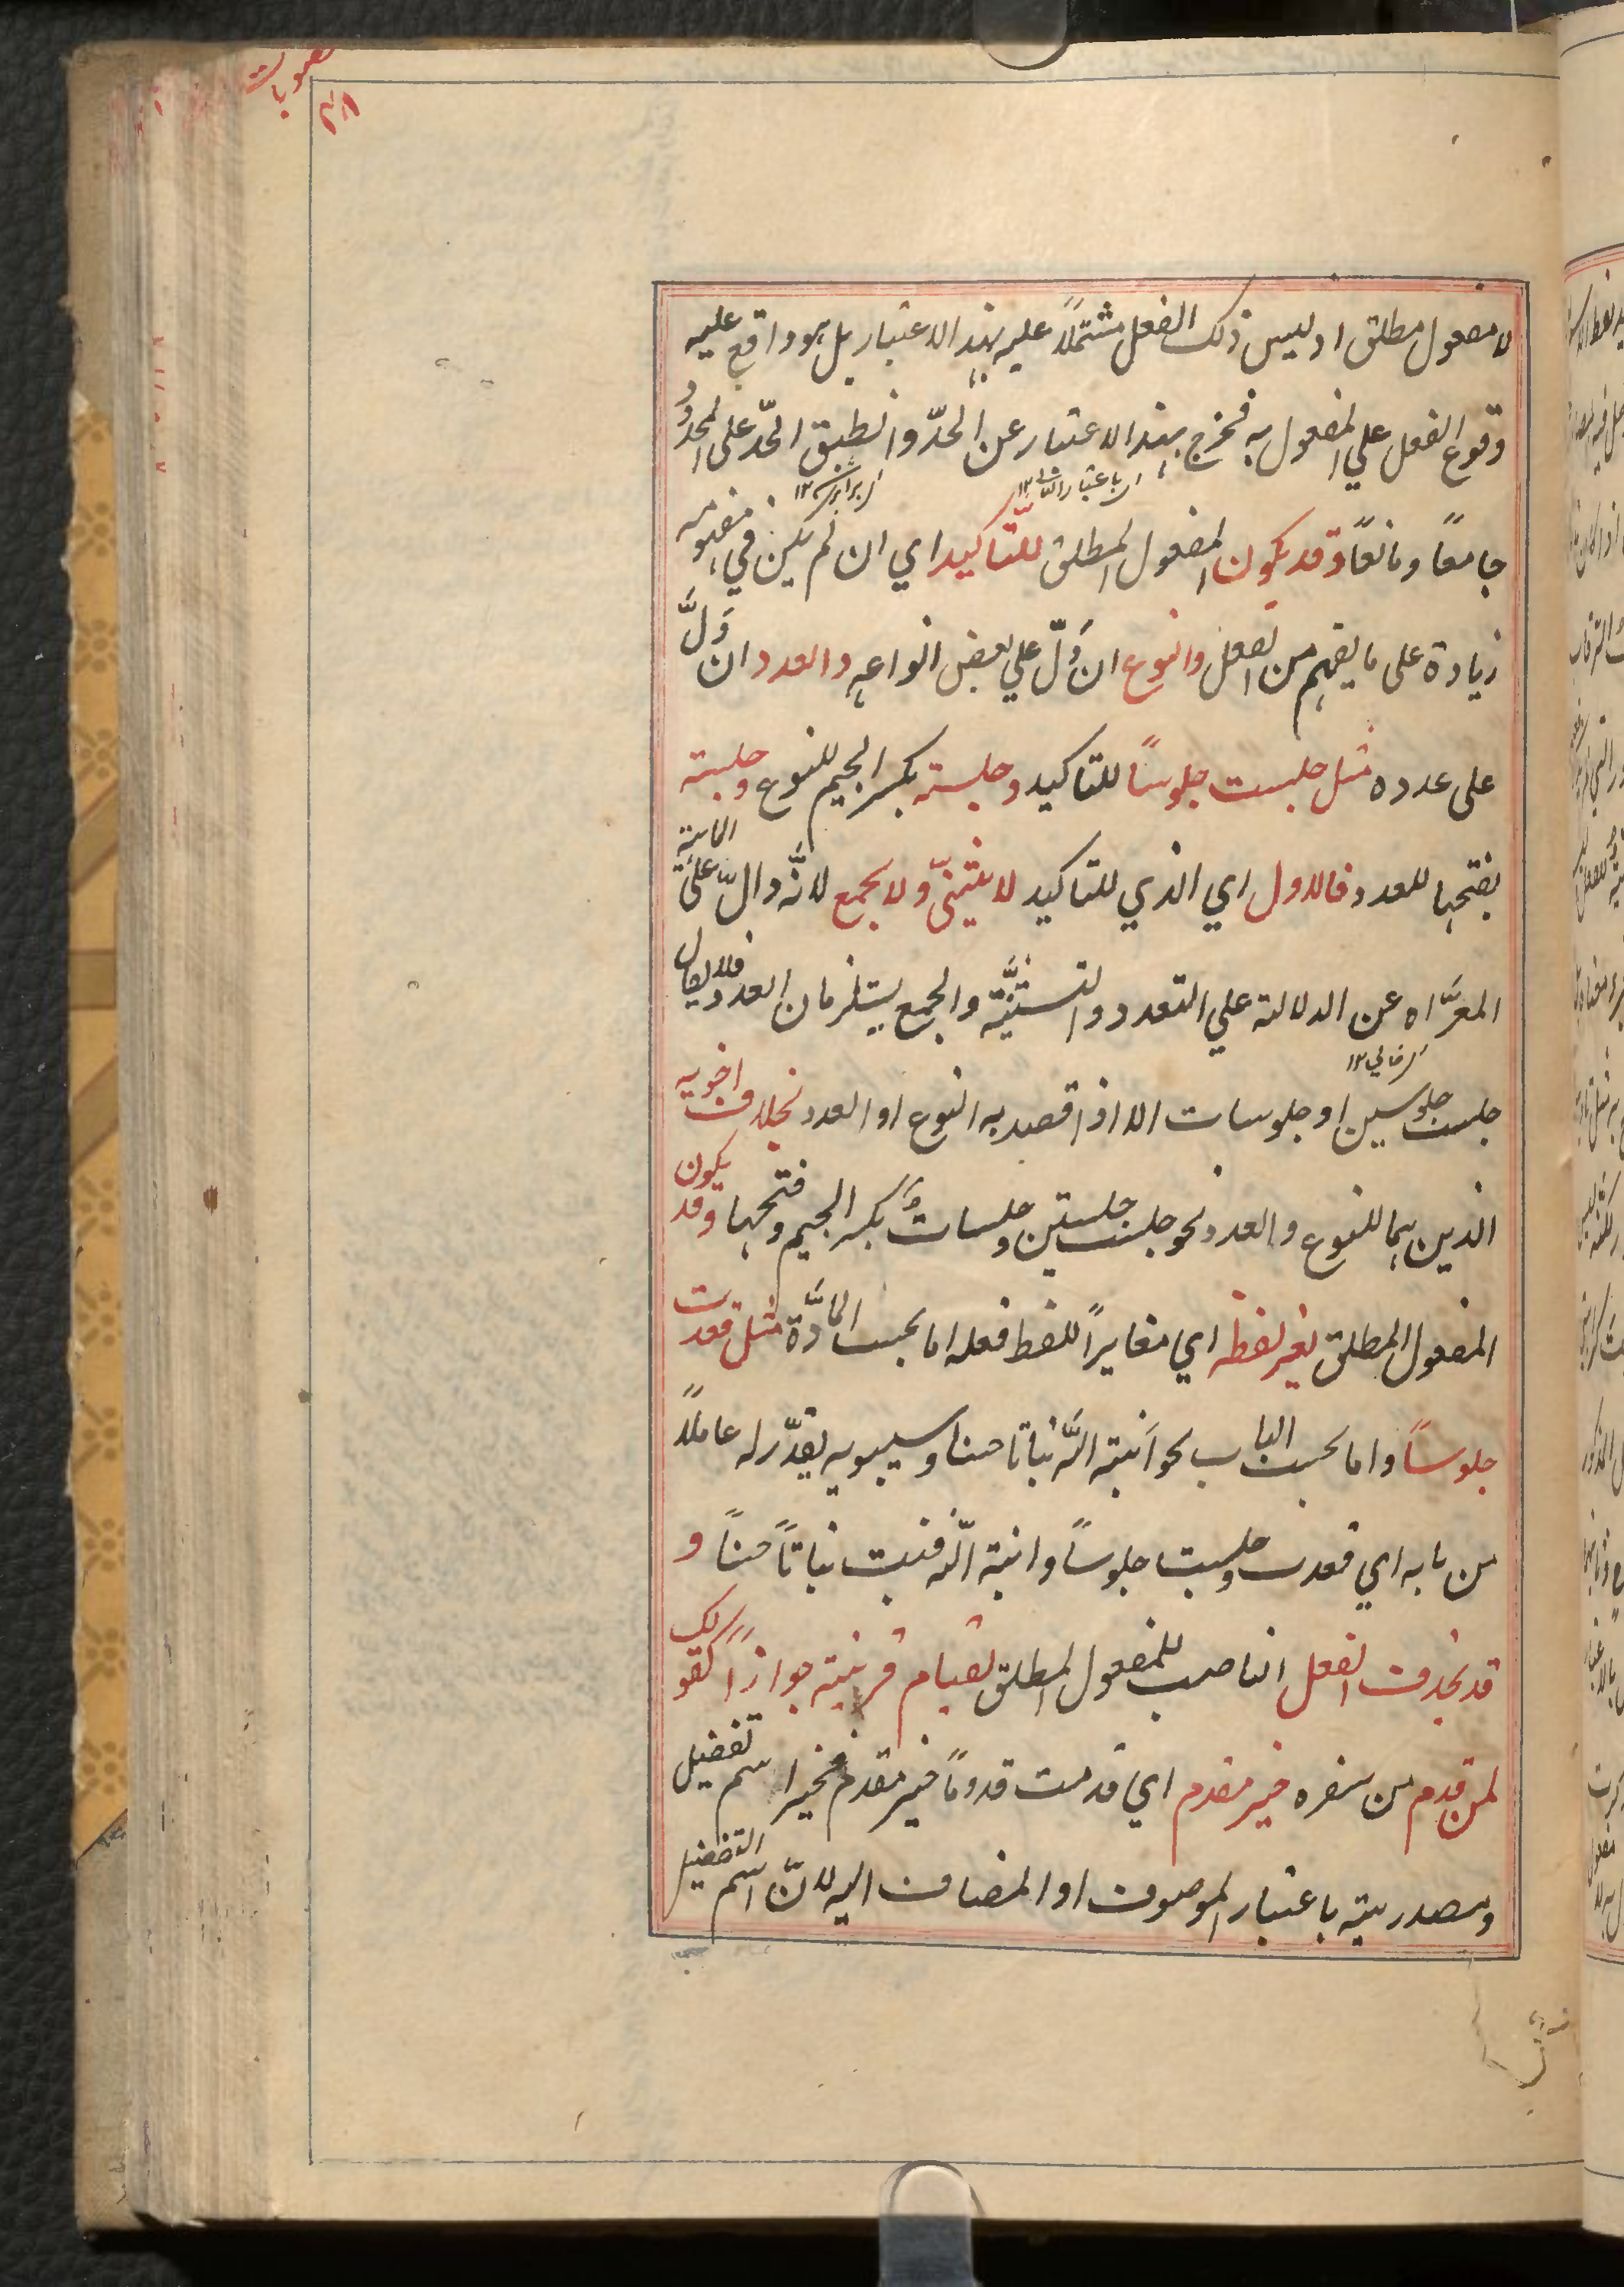 منصوبات
لا مفعول مطلق اذ ليس ذلك الفعل مشتملاً عليه بهذا الاعتبار بل هو واقع عليه
وقوع الفعل علي المفعول به فخرج بهذا الاعتبار عن الحدّ وانطبق الحدّ على المحدود
جامعًا ومانعًا وقد يكون المفعول المطلق للتّاكيد اي ان لم يكن في مفهومه
زيادة على ما يفهم من الفعل والنوع ان دَلّ علي بعض انواعه والعدد ان دَلَّ
على عدده مثل جلست جلوسًا للتاكيد وجلسة بكسر الجيم للنوع وجلسة
بفتحها للعدد فالاول اي الذي للتاكيد لا يثنىّ ولا يجمع لانّه دالّ على الماهية
المعرّاه عن الدلالة علي التعدد والتستثنيّة والجمع يستلزمان العدد فلا يقال
جلست جلوسين او جلوسات الا اذا قصد به النوع او العدد بخلاف اخويه
الذين هما للنوع والعدد نحو جلست جلستين وجلسات بكسر الجيم وفتحها وقد يكون
المفعول المطلق بغير لفظه اي مغايرًا للفظ فعله اما بحسب المادّة مثل قعدت
جلوسًا واما بحسب الباب نحو اَنبته اللّه نباتا حسنا وسيبويه يقدّر له عاملاً
من بابه اي قعدت وجلست جلوسًا وانبته اللّه فنبت نباتًا حسنًا و
قد يحذف الفعل الناصب للمفعول المطلق لقيام قرينة جوازًا كقولك
لمن قدم من سفره خير مقدم اي قدمت قدومًا خير مقدم فخير اسم تفضيل
ومصدريته باعتبار الموصوف او المضاف اليه لانّ اسم التفضيل